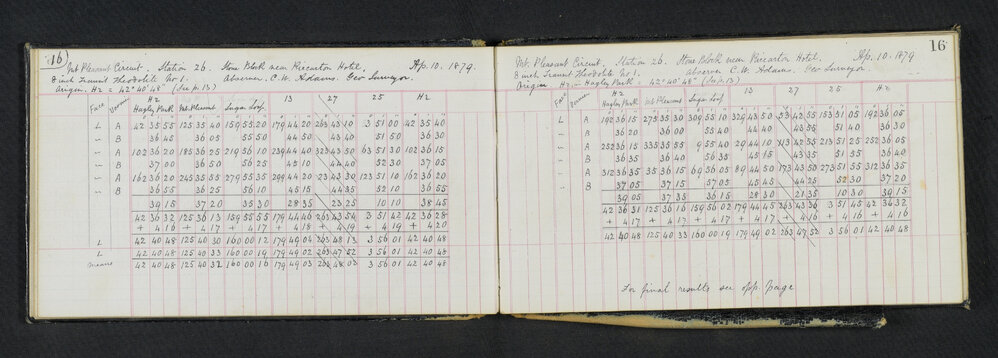 16)
Mt. Pleasant Circuit. Station 26. Stone Block near Riccarton Hotel. Ap. 10. 1879.
8 inch Transit Theodolite No 1. Observer C. W. Adams. Geo Surveyor.
Origin. H2 = 42° 40' 48" (See p. 13)
Face Vernier H2 Hagley Park Mt. Pleasant Sugar Loaf 13 27 25 H2
L A 42 35 55 125 35 40 159 55 20 179 44 20 263 43 10 3 51 00 42 35 40
" B 36 45 36 05 55 50 44 50 43 40 51 50 36 30
" A 102 36 20 185 36 25 219 56 10 239 44 40 323 43 50 63 51 30 102 36 15
" B 37 00 36 50 56 25 45 10 44 40 52 30 37 05
" A 162 36 20 245 35 55 279 55 35 299 44 20 23 43 30 123 51 10 162 36 20
" B 36 55 36 25 56 10 45 15 44 35 52 10 36 55
39 15 37 20 35 30 28 35 23 25 10 10 38 45
42 36 32 125 36 13 159 55 55 179 44 46 263 43 54 3 51 42 42 36 28
+ 4 16 + 4 17 + 4 17 + 4 18 + 4 19 + 4 19 + 4 20
L 42 40 48 125 40 30 160 00 12 179 49 04 263 48 13 3 56 01 42 40 48
L 42 40 48 125 40 33 160 00 19 179 49 02 263 47 52 3 56 01 42 40 48
means 42 40 48 125 40 32 160 00 16 179 49 03 263 48 02 3 56 01 42 40 48
16
Mt. Pleasant Circuit. Station 26. Stone Block near Riccarton Hotel. Ap. 10. 1879
8 inch Transit Theodolite No 1. Observer C. W. Adams. Geo Surveyor.
Origin H2 = 42° 40' 48" (See p. 13)
Face Vernier H2 Hagley Park Mt. Pleasant Sugar Loaf 13 27 25 H2
L A 192 36 15 275 35 30 309 55 10 329 43 50 53 42 55 153 51 05 192 36 05
" B 36 20 36 00 55 40 44 40 43 55 51 40 36 30
" A 252 36 15 335 35 55 9 55 40 29 44 10 113 42 55 213 51 25 252 36 25
" B 36 35 36 40 56 35 45 15 43 35 51 35 36 40
" A 312 36 35 35 36 15 69 36 05 89 44 50 173 43 50 273 51 55 312 36 35
" B 37 05 37 15 57 05 45 45 44 25 52 30 37 20
39 05 37 35 36 15 28 30 21 35 10 30 39 15
42 36 31 125 36 16 159 56 02 179 44 45 263 43 36 3 51 45 42 36 32
+ 4 17 + 4 17 + 4 17 + 4 17 + 4 16 + 4 16 + 4 16
42 40 48 125 40 33 160 00 19 179 49 02 263 47 52 3 56 01 42 40 48
For final results see opp. page